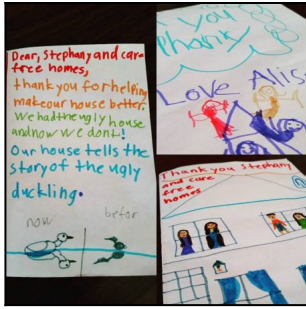 Dear, Stephany and care-
free homes,
thank you for helping
make our house better.
We had the ugly house
and now we dont!
Our house tells the
story of the ugly
duckling.
now
befor
you
phany
Love Alis
Thank you Stephany
and care
free
homes